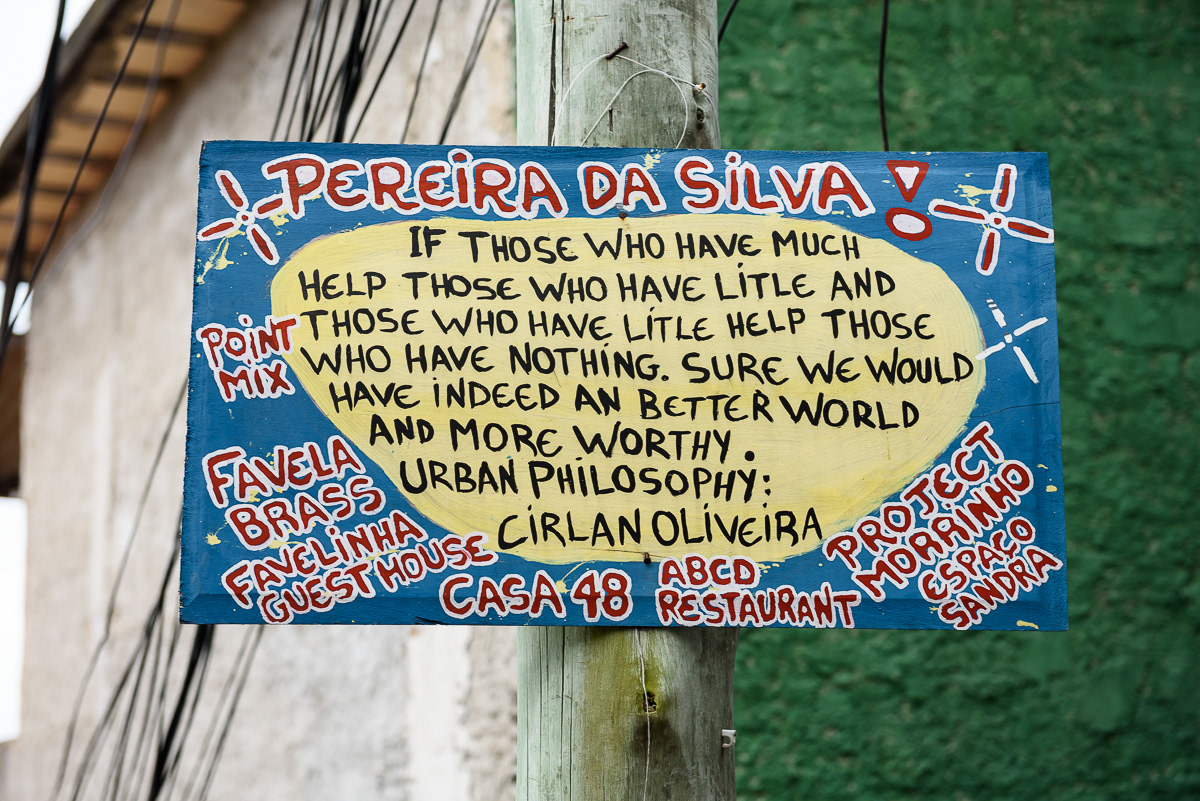 PEREiRA DA SiLVA!
IF THOSE WHO HAVE MUCH
HELP THOSE WHO HAVE LÍTLE AND
THOSE WHO HAVE LÍTLE HELP THOSE
WHO HAVE NOTHÍNG. SURE WE WOULD
HAVE iNDEED AN BETTER WORLD
AND MORE WORTHY.
URBAN PHiLOSOPHY:
CiRLAN OLiVEiRA
POiNT
MiX
FAVELA
BRASS
FAVELiNHA
GUEST HOUSE
CASA 48
ABCD
RESTAURANT
PROJECT
MORRiNHO
ESPAÇO
SANDRA